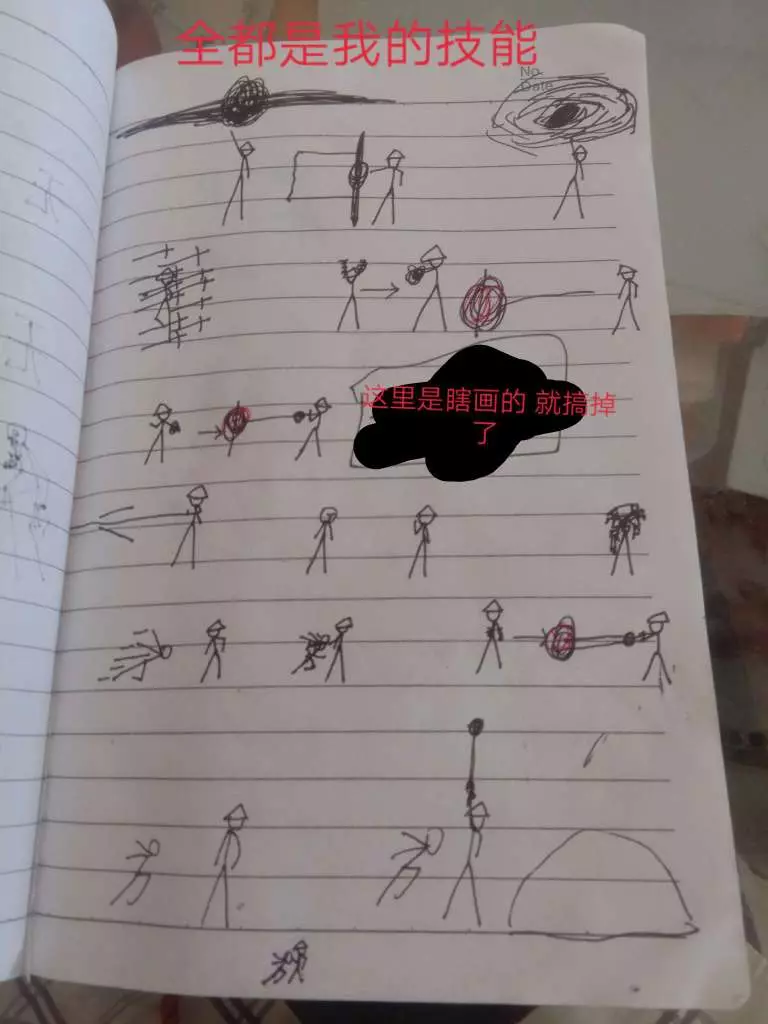 全都是我的技能
No.
Date
这里是瞎画的 就搞掉
了